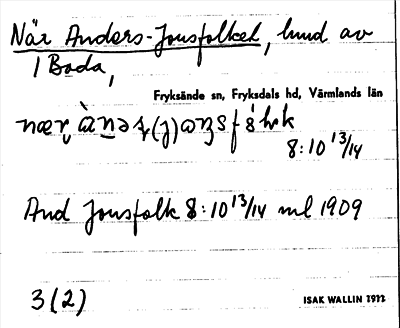 När Anders-Jonsfolket, hmd av
1 Boda,
Fryksände sn, Fryksdals hd, Värmlands län
8:10 13/14
And Jonsfolk 8:10 13/14 ml 1909
3(2)
ISAK WALLIN 1922